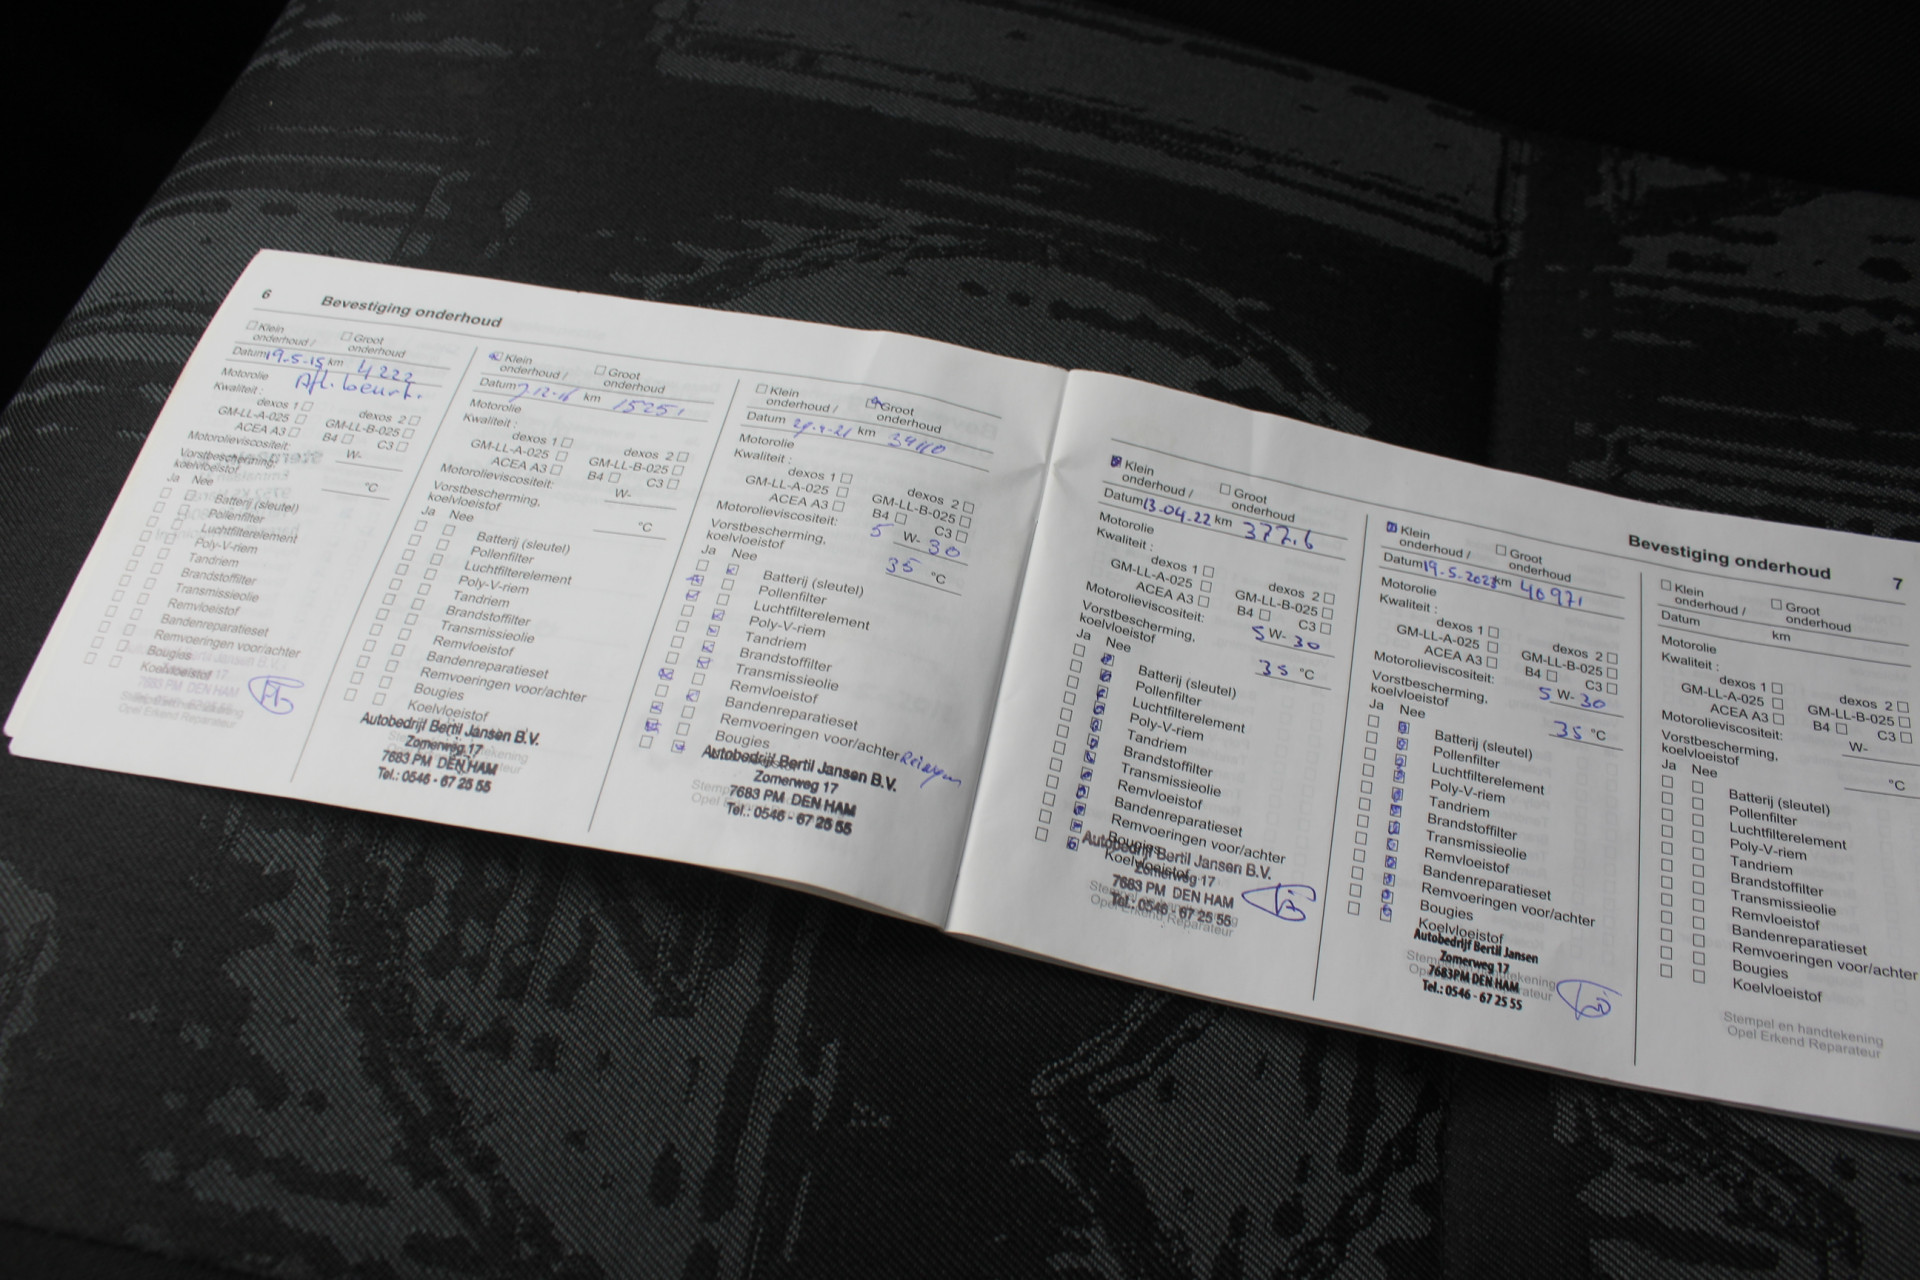 6
Bevestiging onderhoud
Klein onderhoud / Groot onderhoud
Datum 19-5-15 km 4222
Motorolie Afl. beurt.
Kwaliteit :
dexos 1 dexos 2
GM-LL-A-025 GM-LL-B-025
ACEA A3 B4 C3
Motorolieviscositeit: W-
Vorstbescherming,
koelvloeistof °C
Ja Nee
Batterij (sleutel)
Pollenfilter
Luchtfilterelement
Poly-V-riem
Tandriem
Brandstoffilter
Transmissieolie
Remvloeistof
Bandenreparatieset
Remvoeringen voor/achter
Bougies
Koelvloeistof
7683 PM DEN HAM
Opel Erkend Reparateur
Klein onderhoud / Groot onderhoud
Datum km 15251
Motorolie
Kwaliteit :
dexos 1 dexos 2
GM-LL-A-025 GM-LL-B-025
ACEA A3 B4 C3
Motorolieviscositeit: W-
Vorstbescherming,
koelvloeistof °C
Ja Nee
Batterij (sleutel)
Pollenfilter
Luchtfilterelement
Poly-V-riem
Tandriem
Brandstoffilter
Transmissieolie
Remvloeistof
Bandenreparatieset
Remvoeringen voor/achter
Bougies
Koelvloeistof
Autobedrijf Bertil Jansen B.V.
Zomerweg 17
7683 PM DEN HAM
Tel.: 0546 - 67 25 55
Klein onderhoud / Groot onderhoud
Datum km
Motorolie
Kwaliteit :
dexos 1 dexos 2
GM-LL-A-025 GM-LL-B-025
ACEA A3 B4 C3
Motorolieviscositeit: 5 W- 30
Vorstbescherming,
koelvloeistof 35 °C
Ja Nee
Batterij (sleutel)
Pollenfilter
Luchtfilterelement
Poly-V-riem
Tandriem
Brandstoffilter
Transmissieolie
Remvloeistof
Bandenreparatieset
Remvoeringen voor/achter
Bougies
Autobedrijf Bertil Jansen B.V.
Zomerweg 17
7683 PM DEN HAM
Tel.: 0546 - 67 25 55
Opel Erkend
Bevestiging onderhoud
7
Klein onderhoud / Groot onderhoud
Datum 13-04-22 km 377.6
Motorolie
Kwaliteit :
dexos 1 dexos 2
GM-LL-A-025 GM-LL-B-025
ACEA A3 B4 C3
Motorolieviscositeit: 5 W- 30
Vorstbescherming,
koelvloeistof 35 °C
Ja Nee
Batterij (sleutel)
Pollenfilter
Luchtfilterelement
Poly-V-riem
Tandriem
Brandstoffilter
Transmissieolie
Remvloeistof
Bandenreparatieset
Remvoeringen voor/achter
Bougies
Koelvloeistof
Autobedrijf Bertil Jansen B.V.
Zomerweg 17
7683 PM DEN HAM
Tel.: 0546 - 67 25 55
Opel Erkend Reparateur
Klein onderhoud / Groot onderhoud
Datum 19-5-2023 km 40971
Motorolie
Kwaliteit :
dexos 1 dexos 2
GM-LL-A-025 GM-LL-B-025
ACEA A3 B4 C3
Motorolieviscositeit: 5 W- 30
Vorstbescherming,
koelvloeistof 35 °C
Ja Nee
Batterij (sleutel)
Pollenfilter
Luchtfilterelement
Poly-V-riem
Tandriem
Brandstoffilter
Transmissieolie
Remvloeistof
Bandenreparatieset
Remvoeringen voor/achter
Bougies
Koelvloeistof
Autobedrijf Bertil Jansen
Zomerweg 17
7683PM DEN HAM
Tel.: 0546 - 67 25 55
Klein onderhoud / Groot onderhoud
Datum km
Motorolie
Kwaliteit :
dexos 1 dexos 2
GM-LL-A-025 GM-LL-B-025
ACEA A3 B4 C3
Motorolieviscositeit: W-
Vorstbescherming,
koelvloeistof °C
Ja Nee
Batterij (sleutel)
Pollenfilter
Luchtfilterelement
Poly-V-riem
Tandriem
Brandstoffilter
Transmissieolie
Remvloeistof
Bandenreparatieset
Remvoeringen voor/achter
Bougies
Koelvloeistof
Stempel en handtekening
Opel Erkend Reparateur